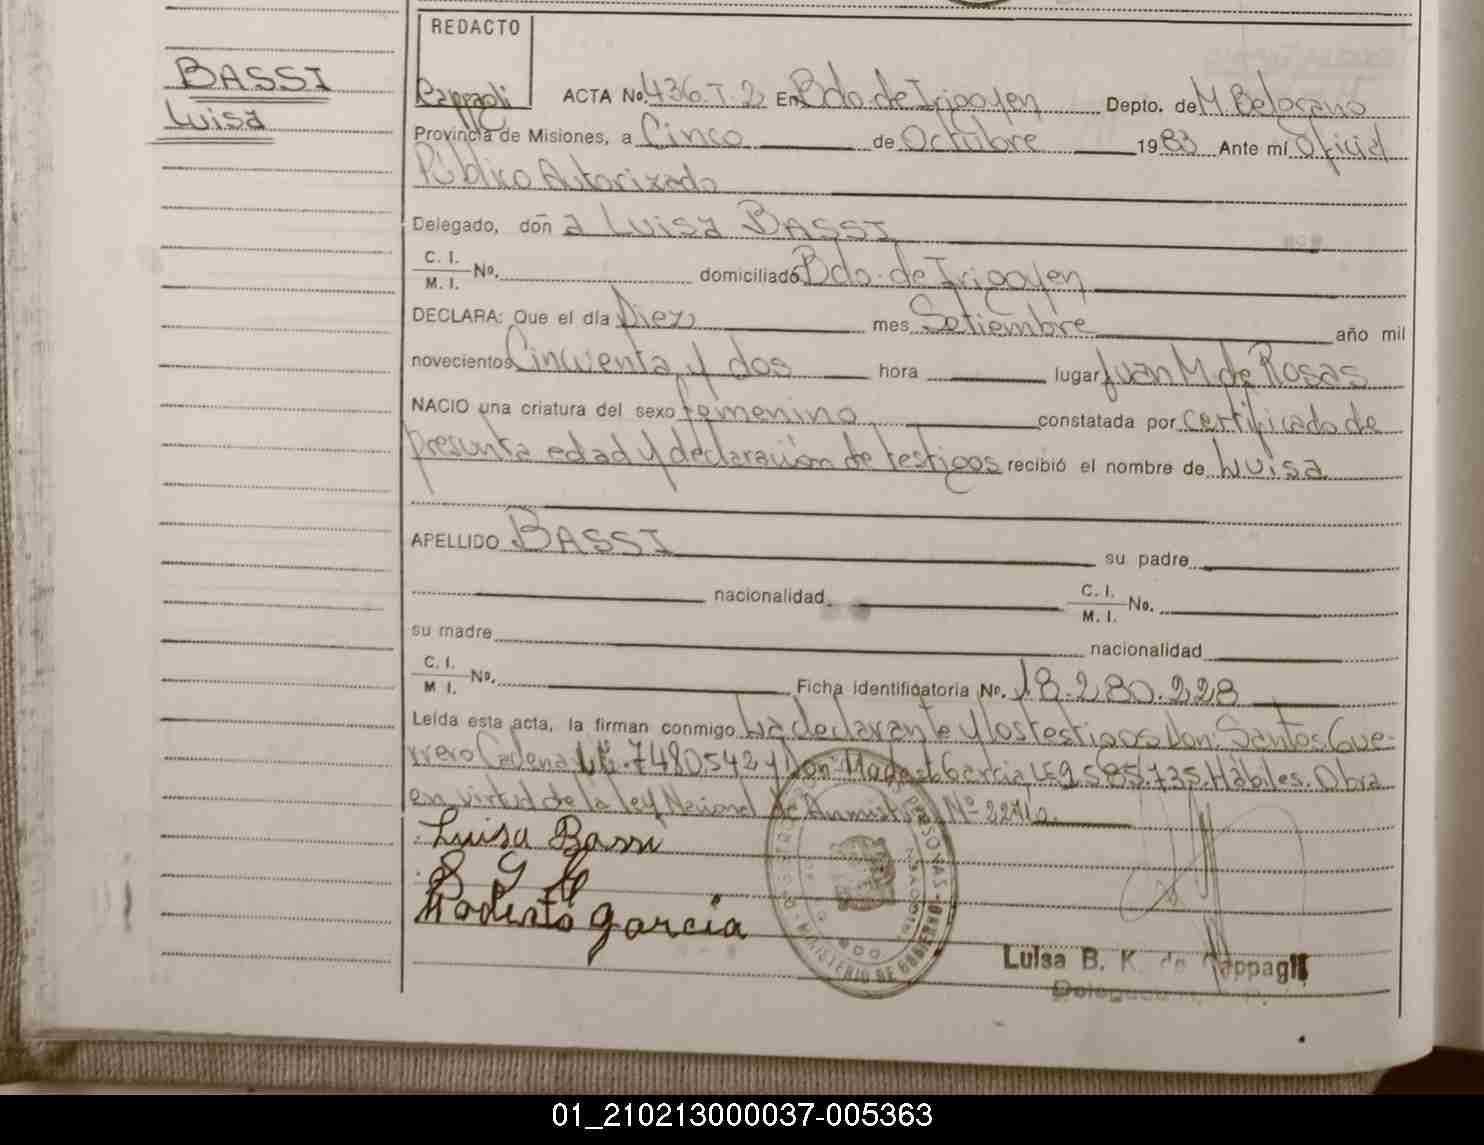 REDACTO
Cappagli
BASSI
Luisa
ACTA No. 436.T.2 En Bdo. de Irigoyen Depto. de M. Belgrano
Provincia de Misiones, a Cinco de Octubre 1983 Ante mí Oficial
Público Autorizado
Delegado, doñ a Luisa BASSI
C. I.
M. I. No. domiciliado Bdo. de Irigoyen
DECLARA: Que el día Diez mes Setiembre año mil
novecientos Cincuenta y dos hora lugar Juan M. de Rosas
NACIO una criatura del sexo femenino constatada por certificado de
presunta edad y declaración de testigos recibió el nombre de Luisa
APELLIDO BASSI su padre
nacionalidad C. I.
M. I. No.
su madre nacionalidad
C. I.
M I. No. Ficha Identificatoria No. 18.280.228
Leída esta acta, la firman conmigo La declarante y los testigos Don: Santos Gue-
rrero Cadena 7480.542 y Don: Modesto Garcia LE 9.585.735. Hábiles. Obra
en virtud de la ley Nacional de Amnistia Nº
Luisa Bassi
S G
Modesto garcia
PERSONAS
MINISTERIO DE GOBIERNO
Luisa B. K. de Cappagli
01_210213000037-005363